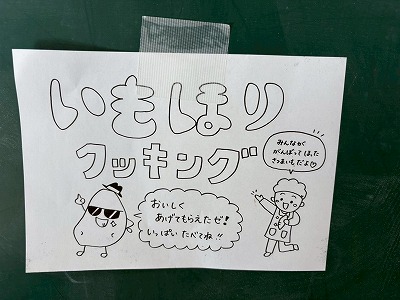 いもほり
クッキング
みんなが
がんばってほった
さつまいもだよ♡
おいしく
あげてもらえたぜ!
いっぱいたべてね!!